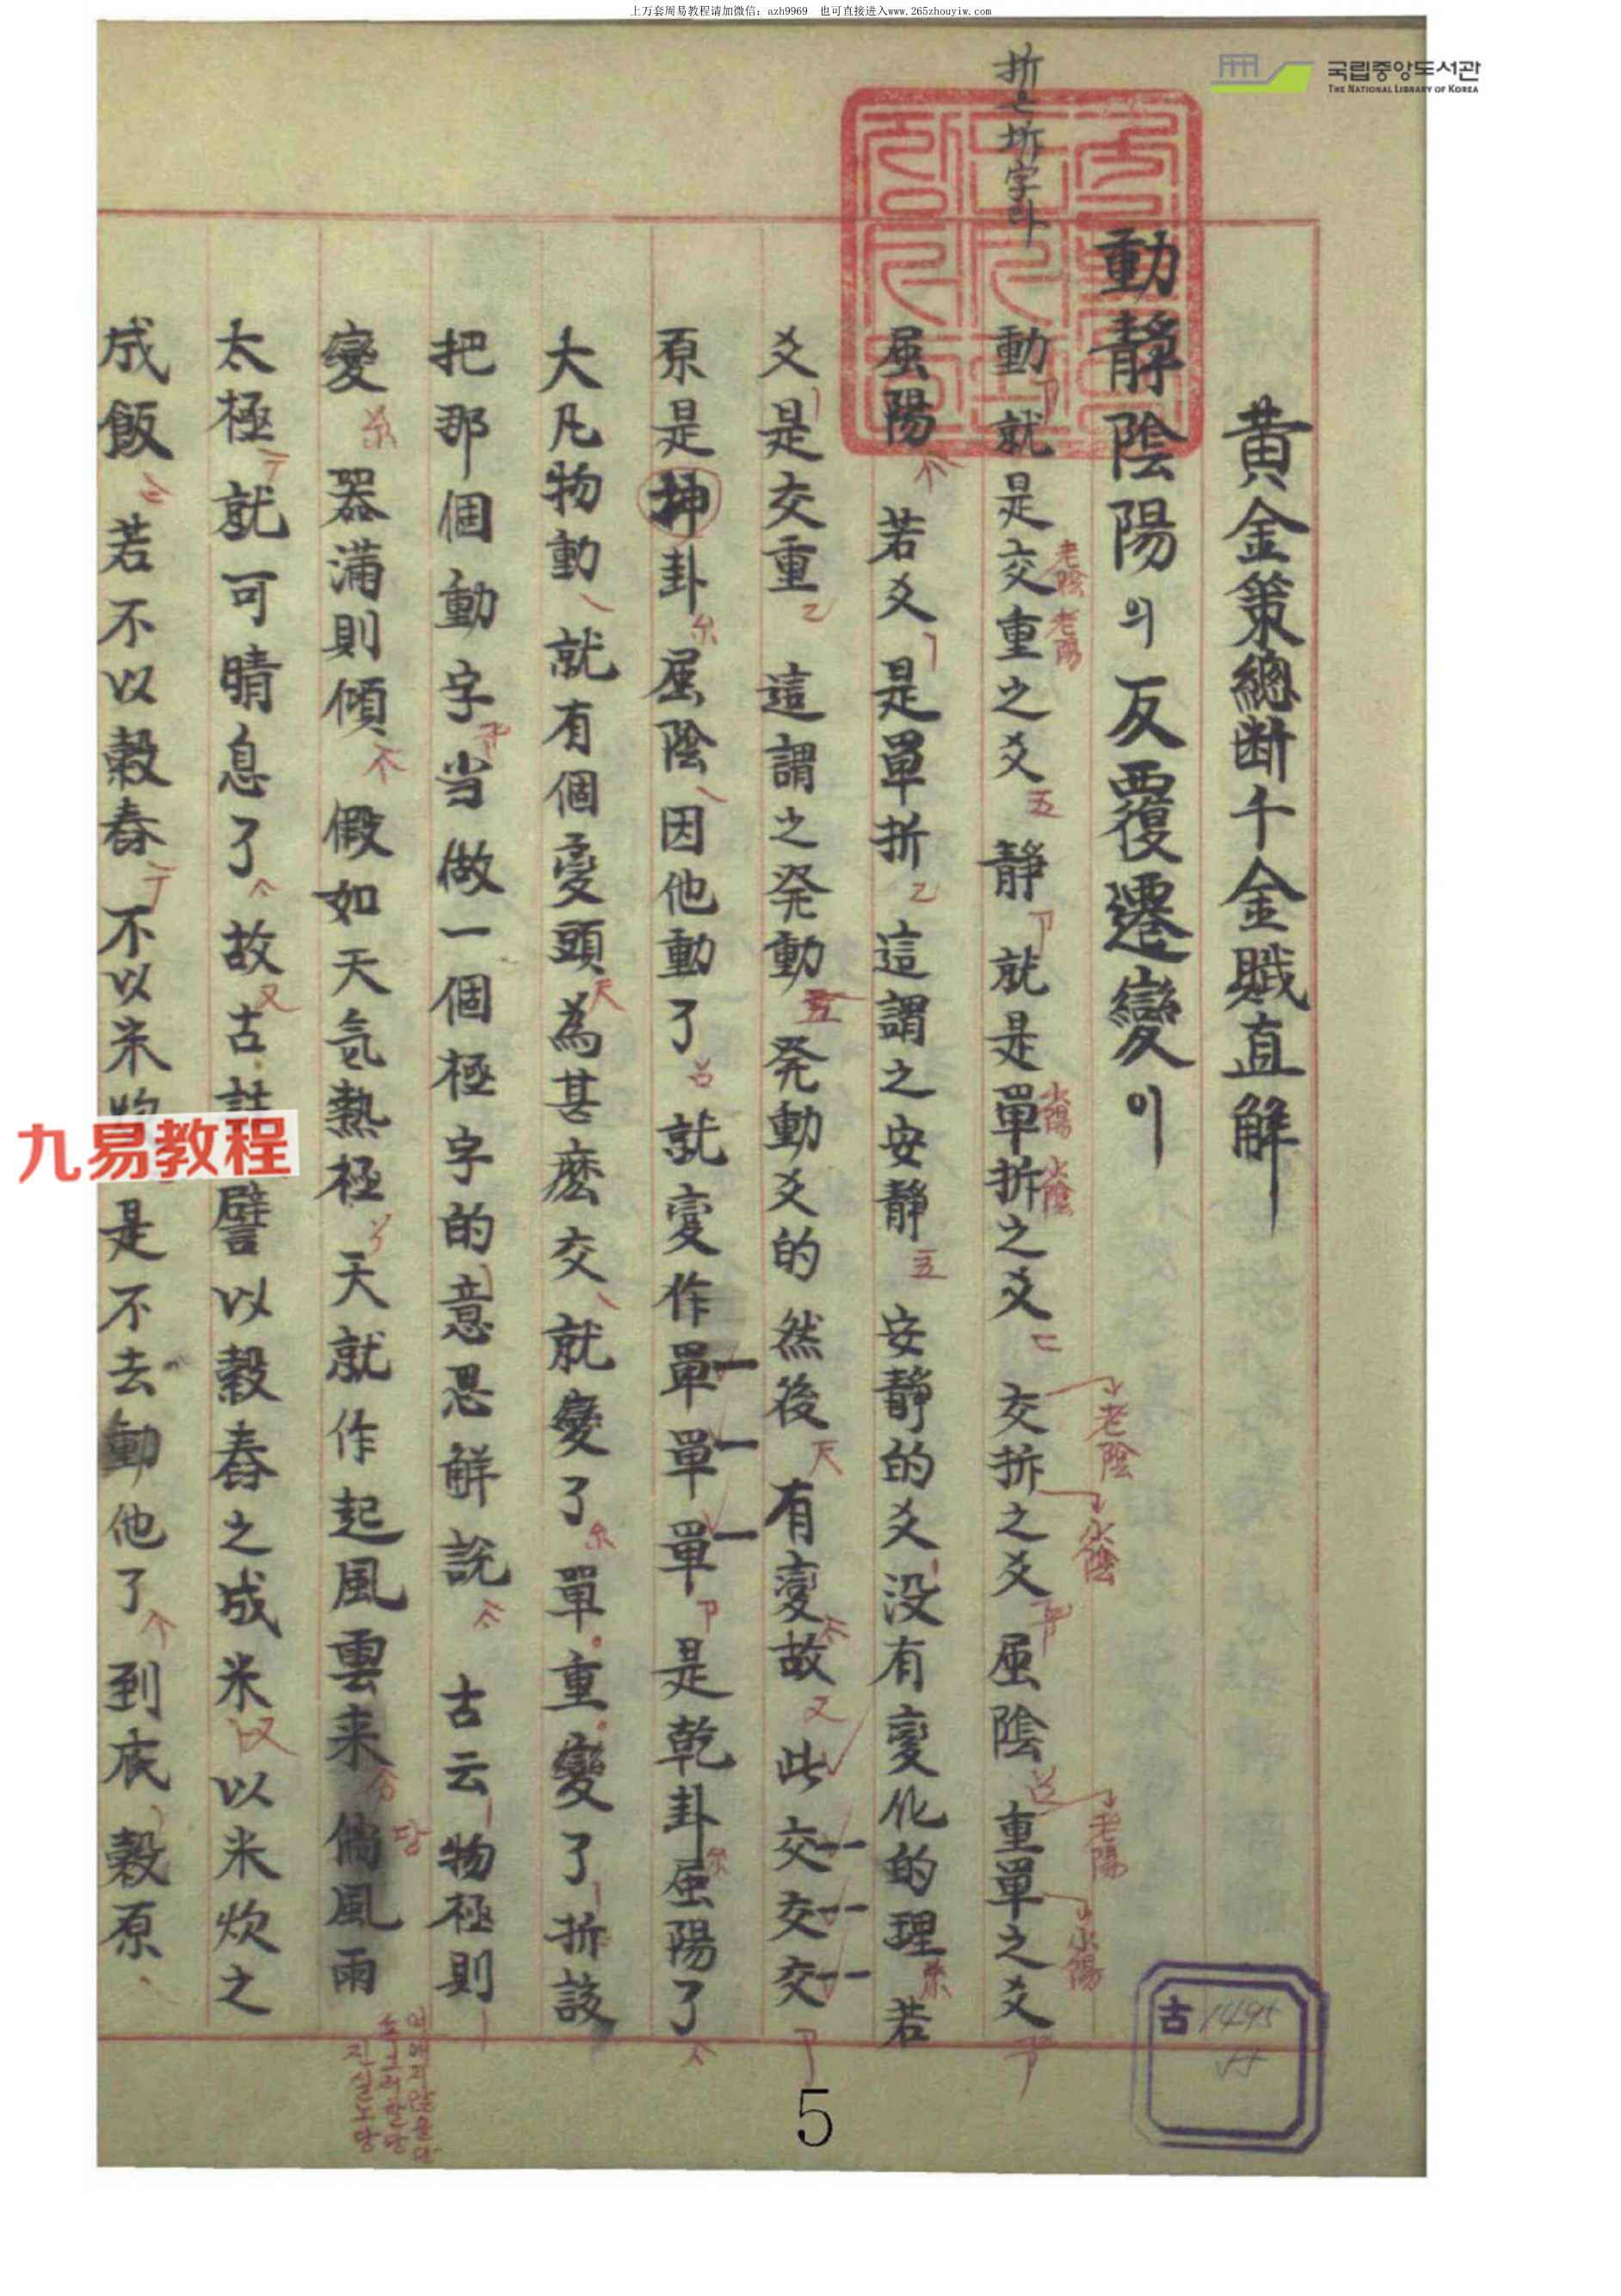 上万套周易教程请加微信：azh9969　也可直接进入www.265zhouyiw.com
국립중앙도서관
THE NATIONAL LIBRARY OF KOREA
黃金策總断千金賦直解
動靜陰陽의反覆遷變이
動就是交重之爻 靜就是單拆之爻 交拆之爻屈陰 重單之爻
屈陽 若爻是單折 這謂之安靜 安靜的爻没有變化的理 若
爻是交重 這謂之発動 発動爻的然後有變故 此交交交
原是坤卦屈陰因他動了 就變作單單單是乾卦屈陽了
大凡物動就有個變頭為甚麽交就變了單重變了折該
把那個動字当做一個極字的意思解說 古云物極則
變 器滿則傾 假如天気熱極 天就作起風雲来 倘風雨
太極就可晴息了 故古註譬以穀舂之成米以米炊之
成飯 若不以穀舂 不以米 是不去動他了 到底穀原
老陰 老陽
少陽 少陰
老陰
少陰
老陽
少陽
九易教程
古 1495
5